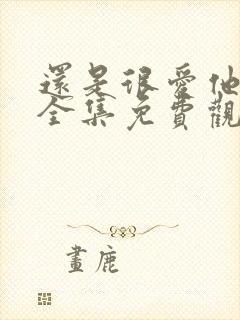 還是很愛他
全集免費觀
畫鹿